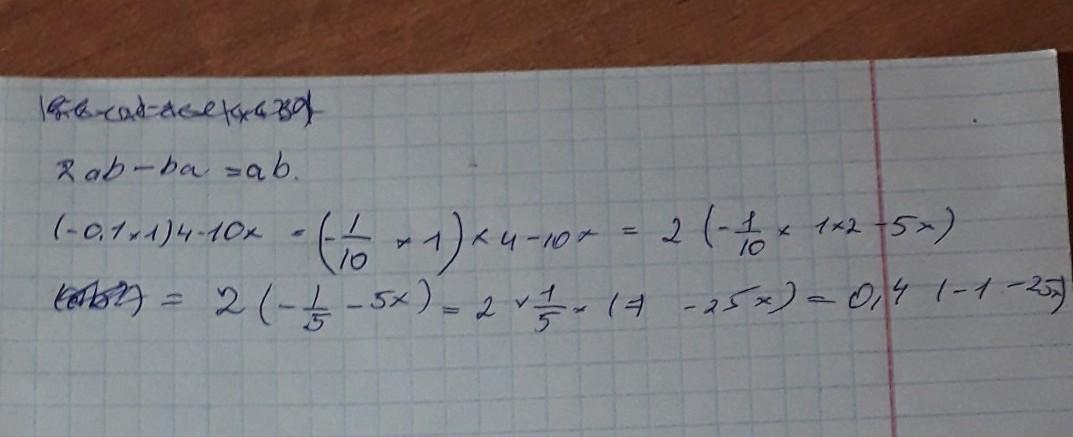 2ab-ba=ab.
(-0,1×1)4-10x = (-1/10 × 1)×4-10x = 2(-1/10 × 1×2-5x)
= 2(-1/5-5x) = 2×1/5×(-1 -25x) = 0,4 (-1-25x)